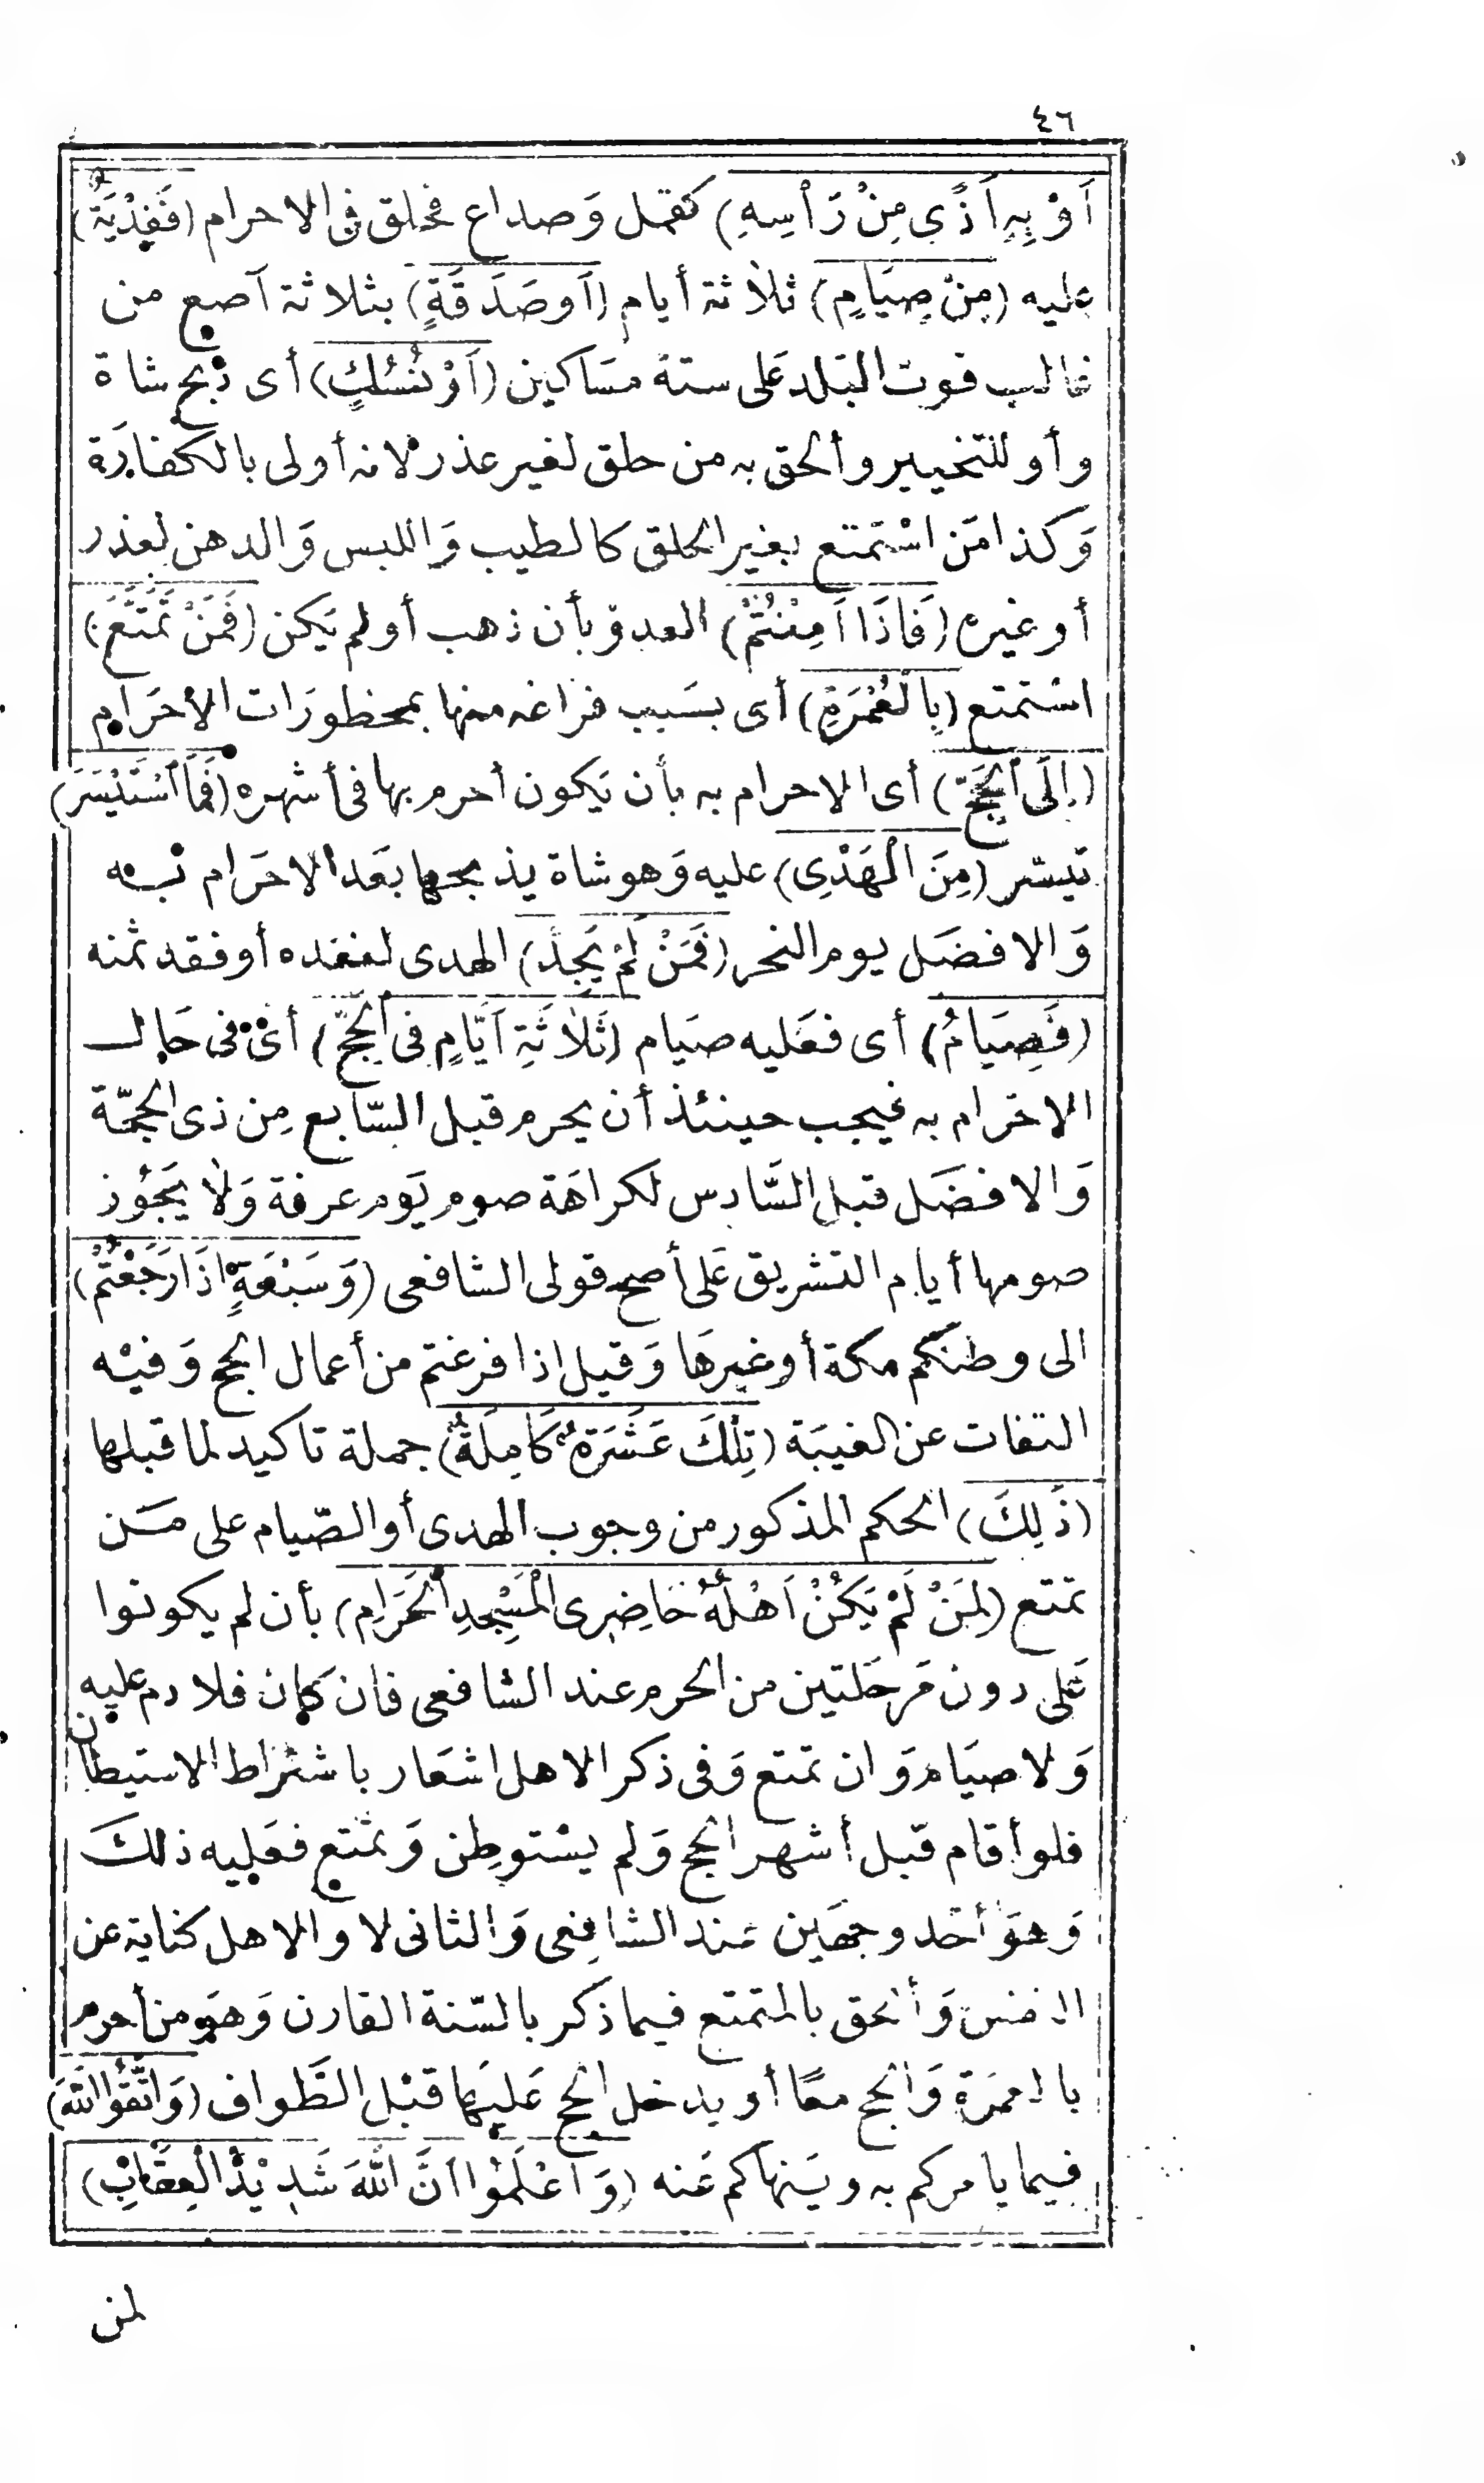 ٤٦
أَوْ بِهِ أَذًى مِنْ رَأْسِهِ) كقمل وَصداع فحلق فى الاحرام (فَفِدْيَةٌ)
عليه (مِنْ صِيَامٍ) ثلاثة أيام (أَو صَدَقَةٍ) بثلاثة آصع من
غالب قوت البَلد عَلى ستة مسَاكين (أَوْ نُسُكٍ) أى ذبح شاة
وأو للتخيير وألحق به من حلق لغير عذر لانه أولى بالكفارَة
وَكذا مَن اسْتمتع بغير الحلق كالطيب وَاللبس وَالدهن لعذر
أو غيره (فَاذَا أَمِنْتُمْ) العدو بأن ذهب أو لم يَكن (فَمَنْ تَمَتَّعَ)
استمتع (بِالْعُمْرَةِ) أى بسَبب فراغه منها بمحظورَات الاحْرَام
(إلَى الْحَجِّ) أى الاحرام به بأن يَكون أحرم بها فى أشهره (فَمَا اسْتَيْسَرَ)
تيسّر (مِنَ الْهَدْىِ) عليه وَهو شاة يذبحها بعَد الاحرَام به
وَالافضَل يوم النحر (فَمَنْ لَمْ يَجِدْ) الهدى لفقده أو فقد ثمنه
(فَصِيَامُ) أى فعَليه صيَام (ثَلاثَةِ أَيَّامٍ فِى الْحَجِّ) أىْ فى حَال
الاحْرام به فيجب حينئذ أن يحرم قبل السّابع مِن ذى الحجّة
وَالافضَل قبل السَّادس لكراهَة صوم يَوم عرفة وَلا يَجُوز
صومها أيام التشريق عَلى أصح قولى الشافعى (وَسَبْعَةٍ اذَا رَجَعْتُمْ)
الى وطنكم مكة أو غيرهَا وَقيل اذا فرغتم من أعمال الحج وَفيْه
التفات عن الغيبَة (تِلْكَ عَشَرَةٌ كَامِلَةٌ) جملة تاكيد لما قبلها
(ذَلِكَ) الحكم المذكور من وجوب الهدى أو الصّيام على مَن
تمتع (لِمَنْ لَمْ يَكُنْ أَهْلُهُ حَاضِرِى الْمَسْجِدِ الْحَرَامِ) بأن لم يكونوا
عَلى دون مَرحَلتين من الحرم عند الشافعى فان كان فلا دم عليه
وَلا صيَام وَان تمتع وَفى ذكر الاهل اشعَار باشتراط الاستيطان
فلو أقام قبل أشهر الحج وَلم يسْتوطِن وَتمتع فعَليه ذلكَ
وَهوَ أحَد وجهَين عند الشافِعى وَالثانى لا والاهل كناية عن
النفس وَألحق بالمتمتع فيما ذكر بالسّنة القارن وَهوَ من أحرم
بالعمرَة وَالحج معًا أو يدخل الحج عَليهَا قبْل الطَّواف (وَاتَّقُوا اللهَ)
فيما يامركم به ويَنهاكم عَنه (وَاعْلَمُوا أَنَّ اللهَ شَدِيْدُ الْعِقَابِ)
لمن